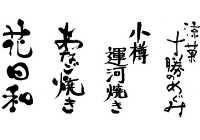 涼菓
十勝のめぐみ
小樽
運河焼き
あなご焼き
花日和